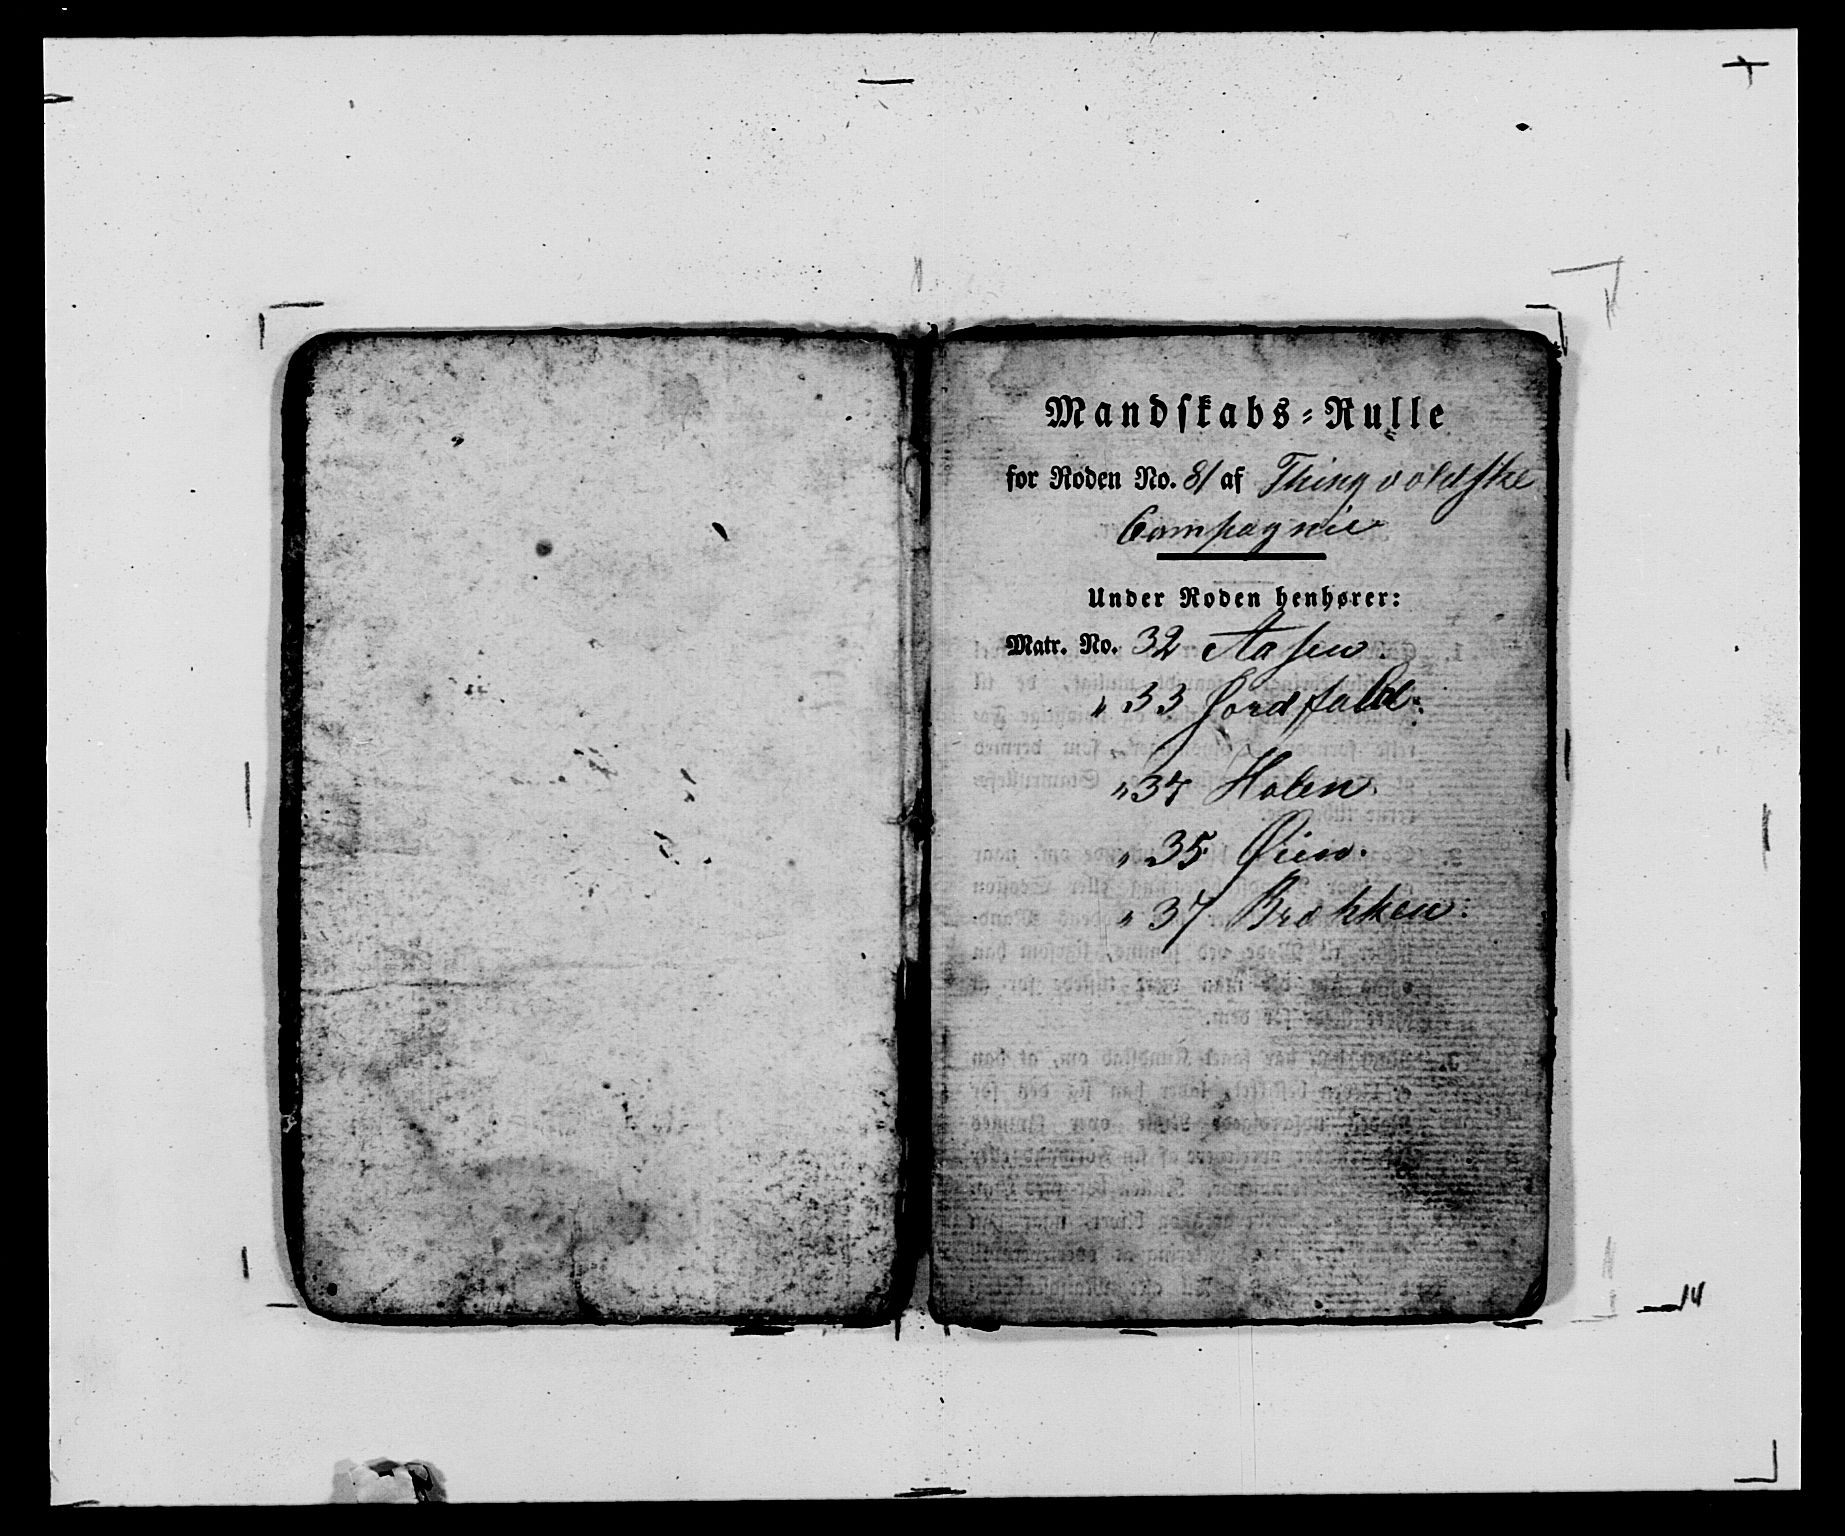 Mandskabs-Rulle
for Roden No. 81 af Thingvoldske
Compagnie
Under Roden henhører:
Matr. No. 32 Aasen.
" 33 Jordfald.
" 34 Holen.
" 35 Øien.
" 37 Brækken.
14